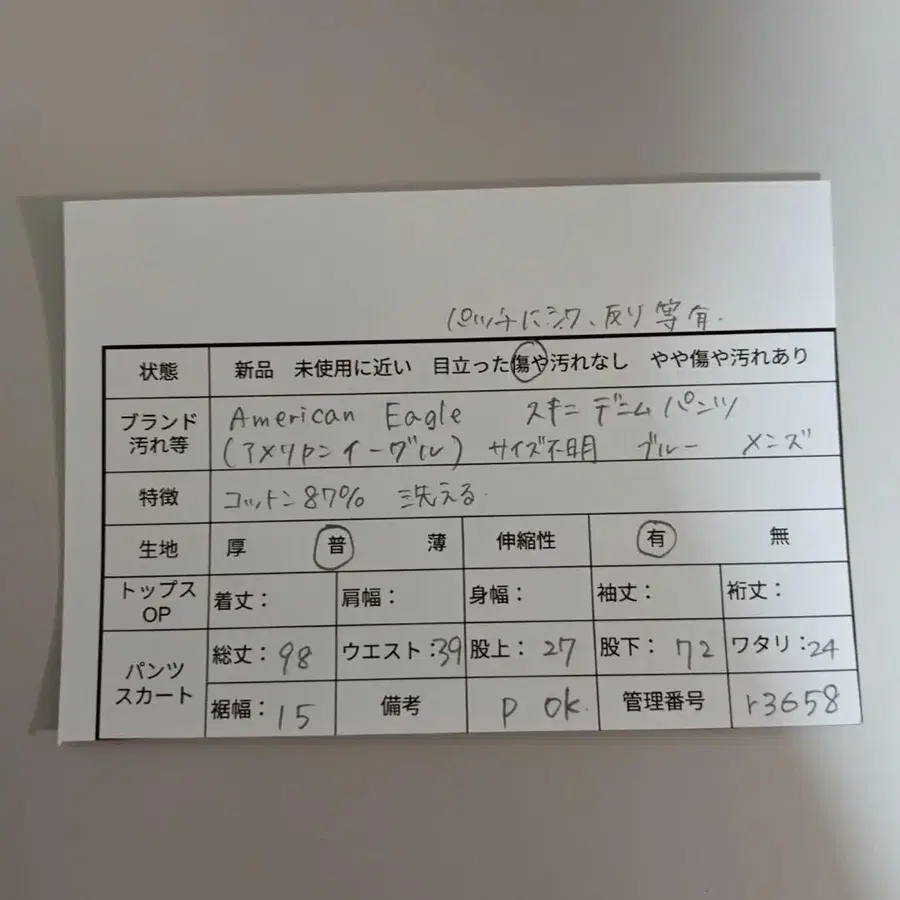 パッチにシワ、反り等有.
状態 新品 未使用に近い 目立った傷や汚れなし やや傷や汚れあり
ブランド汚れ等 American Eagle スキニデニムパンツ
(アメリカンイーグル) サイズ不明 ブルー メンズ
特徴 コットン87% 洗える.
生地 厚 普 薄 伸縮性 有 無
トップス OP 着丈: 肩幅: 身幅: 袖丈: 裄丈:
パンツ スカート 総丈:98 ウエスト:39 股上:27 股下:72 ワタリ:24
裾幅:15 備考 P OK. 管理番号 r3658